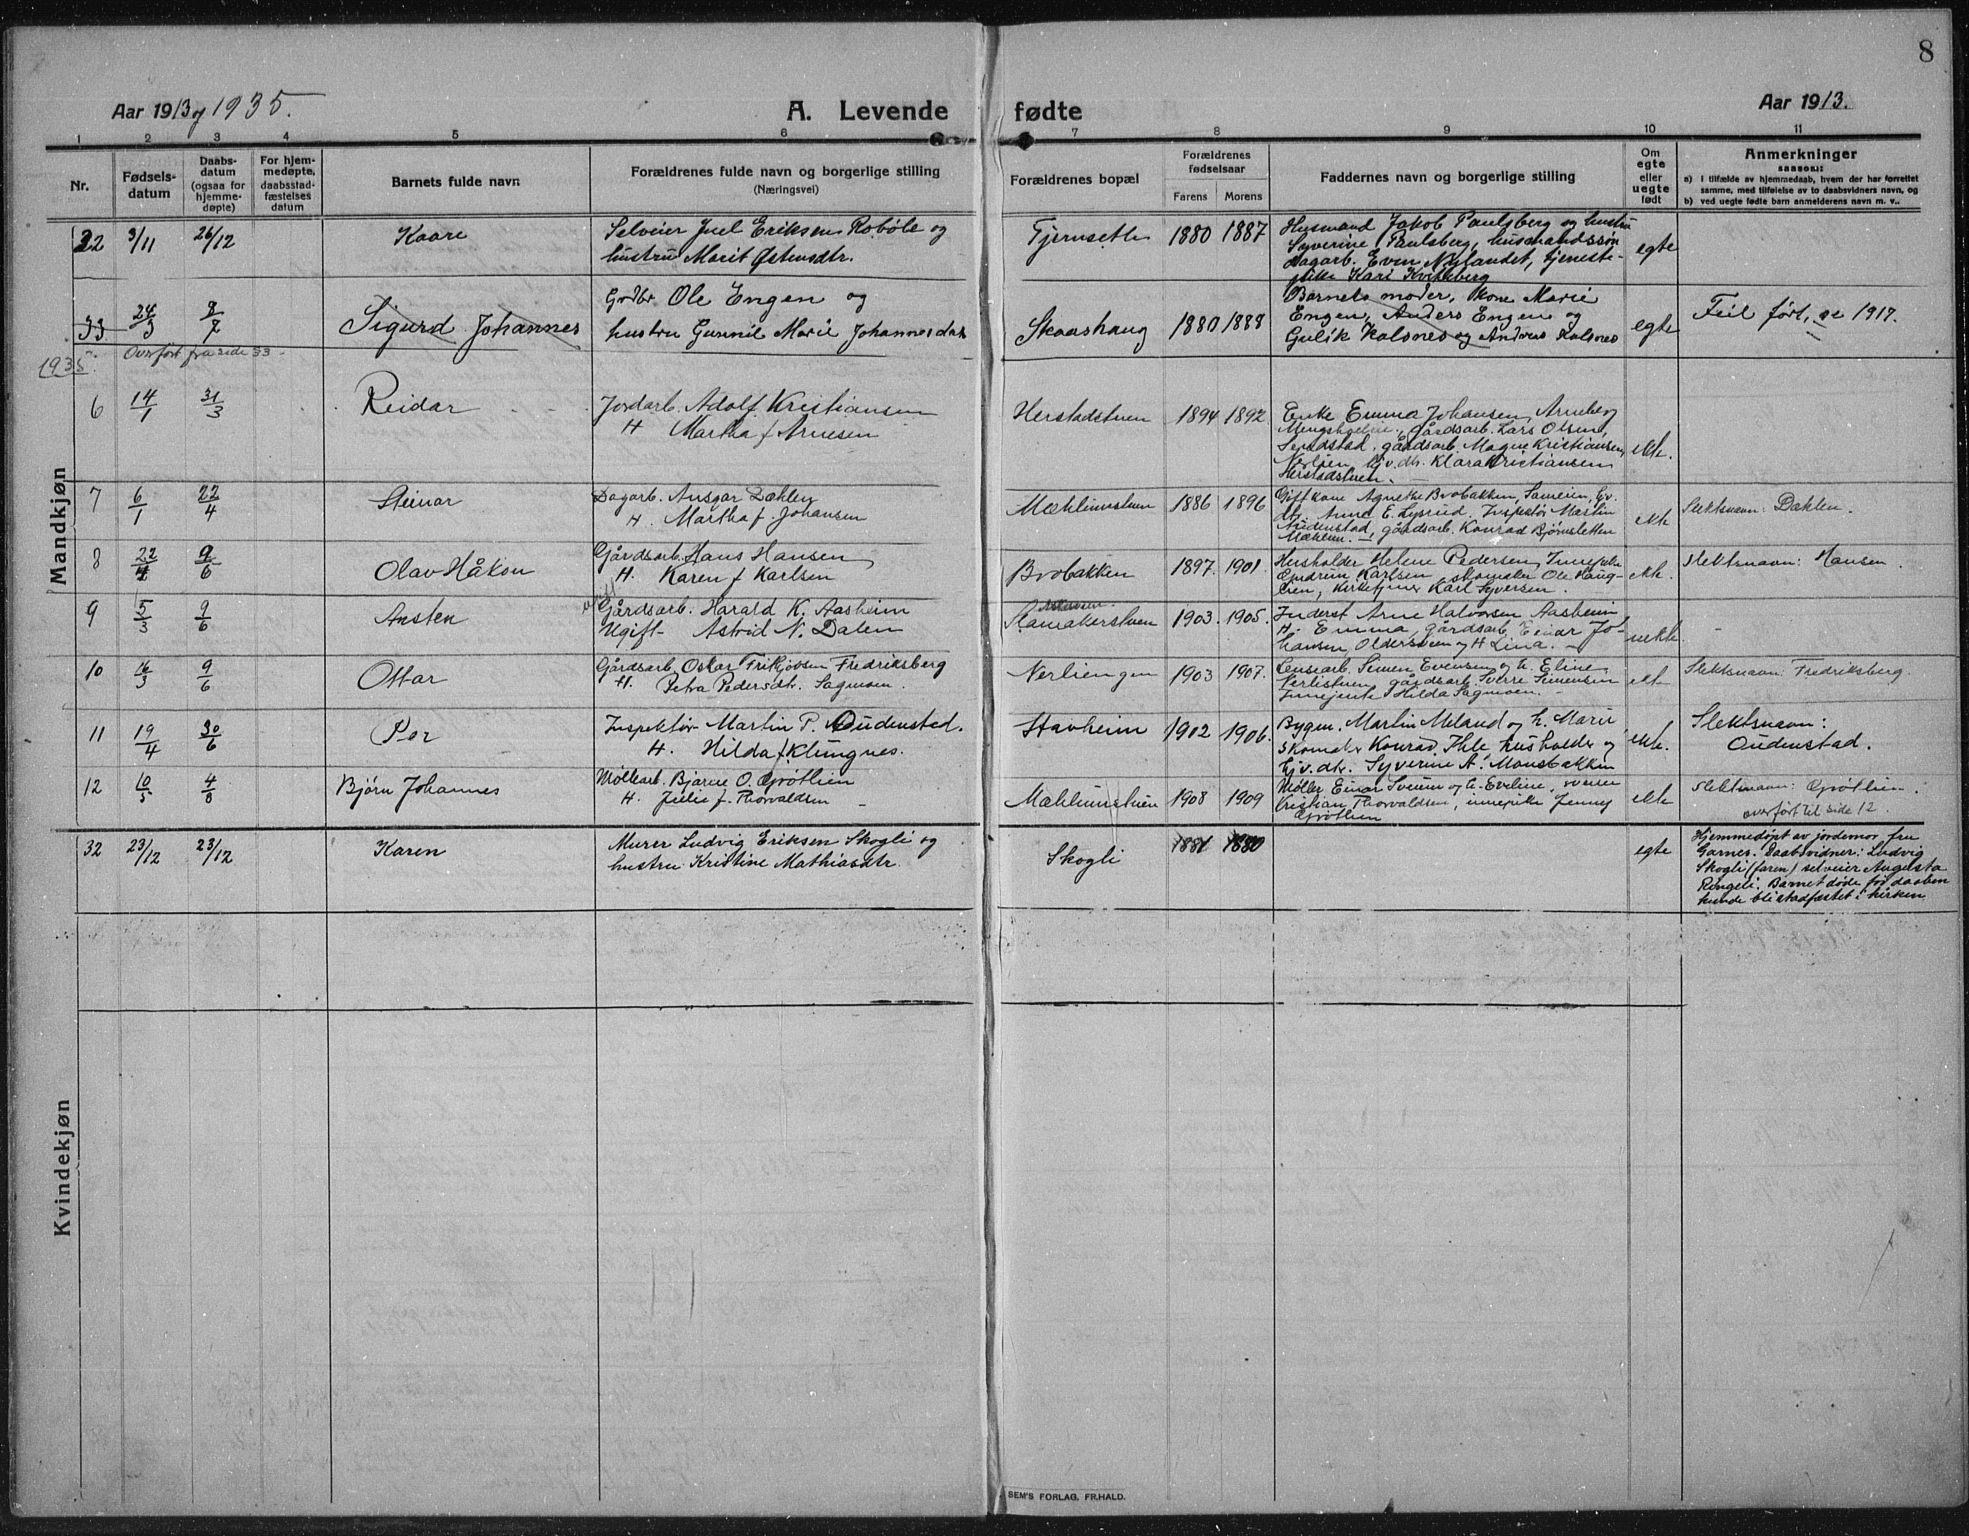 8
Aar 1913 og 1935.
A. Levende fødte
Aar 1913.
1 2 3 4 5 6 7 8 9 10 11
Nr.
Fødsels-
datum
Daabs-
datum
(ogsaa for
hjemme-
døpte)
For hjem-
medøpte,
daabsstad-
fæstelses
datum
Barnets fulde navn
Forældrenes fulde navn og borgerlige stilling
(Næringsvei)
Forældrenes bopæl
Forældrenes
fødselsaar
Farens Morens
Faddernes navn og borgerlige stilling
Om
egte
eller
uegte
født
Anmerkninger
saasom:
a) I tilfælde av hjemmedaab, hvem der har forrettet
samme, med tilføielse av to daabsvidners navn, og
b) ved uegte fødte barn anmelderens navn m. v..
Mandkjøn
32 3/11 26/12 Kaare
Selveier Juel Eriksen Robøle og
hustru Marit Østensdtr.
Tjernsette 1880 1887
Husmand Jakob Paulsberg og hustru
Syverine Paulsberg, husmandssøn
dagarb. Even Nylandet, tjeneste-
pike Kari Kvitberg
egte
33 24/3 9/7 Sigurd Johannes
Grdbr. Ole Engen og
hustru Gunnil Marie Johannesdatr
Skaashaug 1880 1888
Barnets moder, kone Marie
Engen, Anders Engen og
Gulik Kolsnes og Andreas Kolsnes
egte
Feil ført, se 1917.
1935. Overført fra side 33
6 14/1 31/3 Reidar
Jordarb. Adolf Kristiansen
H Martha f Arnesen
Herstadstuen 1894 1892
Enke Emma Johansen Arneberg
gårdsarb. Lars Olsen,
Sendstad, gårdsarb. Magne Kristiansen,
Nerlien Gjv. dtr. Klara Kristiansen
Herstadstuen.
ekte.
7 6/1 22/4 Steinar
Dagarb. Ansgar Dæhlen
H. Martha f. Johansen
Mæhlumstuen 1886 1896
Gift kone Agnethe Brobakken, Gjv.
dtr. Anna E. Lysrud, Inspektør Martin
Audenstad, gårdsarb. Konrad Bjørnsletten
Mæhlum.
ekte
Slektsnavn: Dahlen.
8 22/4 9/6 Olav Håkon
Gårdsarb. Hans Hansen
H. Karen f Karlsen
Brobakken 1897. 1901.
Husholder Helene Pedersen, Innepike
Gudrun Karlsen, skomaker Ole Haug-
eren, kirketjner Karl Syversen.
ekte.
Slektsnavn: Hansen.
9 5/3 9/6 Ansten
Ugift
Gårdsarb. Harald K. Aasheim
Ugift - Astrid N. Dalen
Ramakerstuen 1903. 1905.
Inderst Arne Halvorsen Aasheim
H. Emma, gårdsarb Einar Jo-
hansen, Oldersveen og H Lina.
uekte.
10 16/3 9/6 Ottar
Gårdsarb. Oskar Fritjofsen Fredriksberg
H. Petra Pedersdtr. Sagmoen.
Nerliengen 1903 1907.
Simen Evensen og h. Eline,
Nerlistuen, gårdsarb Sverre Simensen
Innejente Hilda Sagmoen.
ekte
Slektsnavn: Fredriksberg.
11 19/4 30/6 Per
Inspektør Martin P. Oudenstad.
H. Hilda f Klungnes.
Stavheim 1902 1906.
Bygm. Martin Meland og h. Marie
Skomaker Konrad Ihle husholder og
Gjv. dtr. Syverine A. Monsbakken
ekte.
Slektsnavn:
Oudenstad.
12 10/5 4/8 Bjørn Johannes
Møllearb. Bjarne O. Grøtlien
H. Julie f. Thorvaldsen
Mæhlumstuen 1908 1909
Møller Einar Sveum og h. Eveline,
Kristian Thorvaldsen, innepike Jenny
Grøtlien
ekte
Slektsnavn: Grøtlien.
overført til side 12.
Kvindekjøn
32 23/12 23/12 Karen
Murer Ludvig Eriksen Skogli og
hustru Kristine Mathiasdtr.
Skogli 1881 1880
egte
Hjemmedøpt av jordemor fru
Garnes. Daabsvidner: Ludvig
Skogli (faren) selveier Augusta
Ringeli. Barnet døde før daaben
kunde bli stadfæstet i kirken
SEM'S FORLAG, FR.HALD.